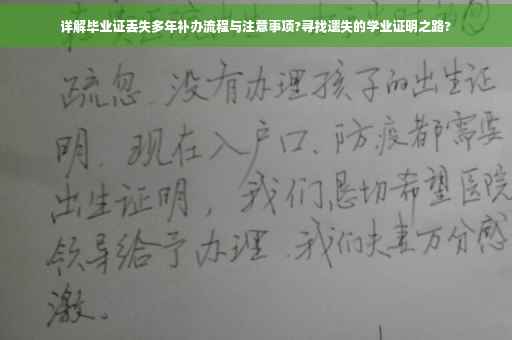 详解毕业证丢失多年补办流程与注意事项?寻找遗失的学业证明之路?
疏忽.没有办理孩子的出生证
明.现在入户口、防疫都需要
出生证明,我们恳切希望医院
领导给予办理.我们夫妻万分感
激。